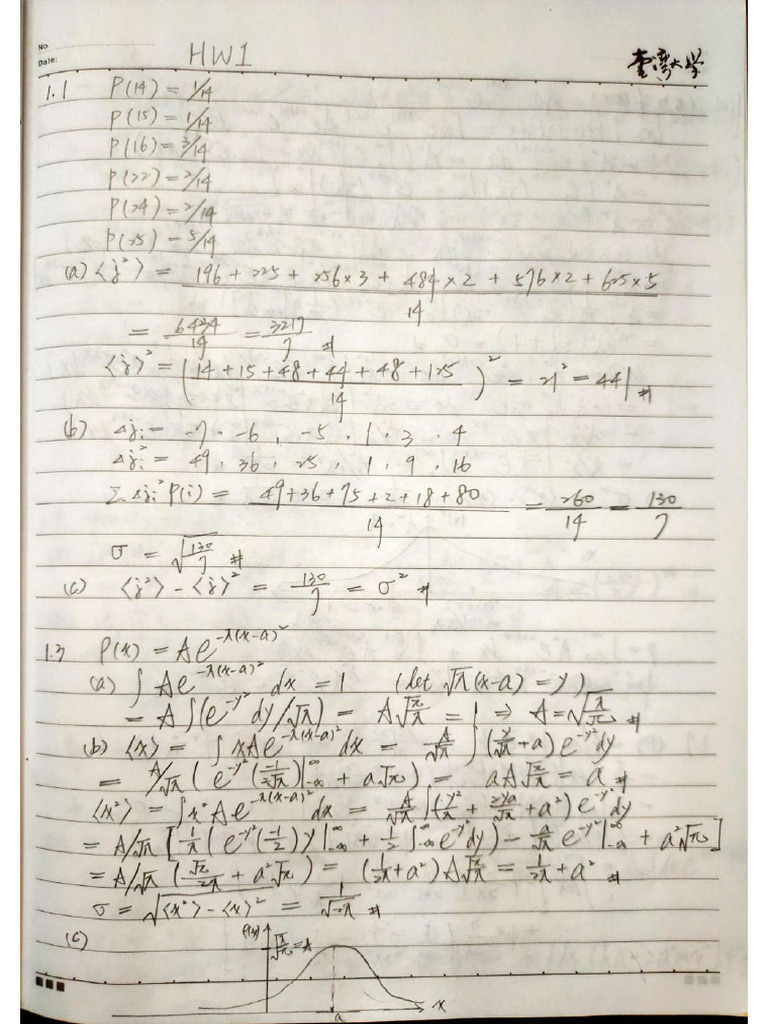 No.
Date:
HW1
臺灣大學
1.1 P(14) = 1/14
P(15) = 1/14
P(16) = 3/14
P(22) = 2/14
P(24) = 2/14
P(25) - 5/14
(a) ⟨j²⟩ = (196 + 225 + 256×3 + 484×2 + 576×2 + 625×5)/14
= 6434/14 = 3217/7 #
⟨j⟩² = ((14 + 15 + 48 + 44 + 48 + 125)/14)² = 21² = 441 #
(b) Δji = -7, -6, -5, 1, 3, 4
Δji² = 49, 36, 25, 1, 9, 16
Σ Δji² P(i) = (49+36+75+2+18+80)/14 = 260/14 = 130/7
σ = √(130/7) #
(c) ⟨j²⟩ - ⟨j⟩² = 130/7 = σ² #
1.3 P(x) = Ae^(-λ(x-a)²)
(a) ∫ Ae^(-λ(x-a)²) dx = 1 (let √λ(x-a) = y)
= A ∫(e^(-y²) dy/√λ) = A√(π/λ) = 1 ⇒ A = √(λ/π) #
(b) ⟨x⟩ = ∫ xAe^(-λ(x-a)²) dx = A/√λ ∫ (y/√λ + a) e^(-y²) dy
= A/√λ (e^(-y²) (-1/(2√λ))|_(-∞)^∞ + a√π) = aA√(π/λ) = a #
⟨x²⟩ = ∫x²Ae^(-λ(x-a)²) dx = A/√λ ∫(y²/λ + 2ya/√λ + a²) e^(-y²) dy
= A/√λ [1/λ (e^(-y²)(-1/2)y|_(-∞)^∞ + 1/2 ∫_(-∞)^∞ e^(-y²) dy) - a/√λ e^(-y²)|_(-∞)^∞ + a²√π]
= A/√λ (√π/2λ + a²√π) = (1/2λ + a²) A√(π/λ) = 1/2λ + a² #
σ = √(⟨x²⟩ - ⟨x⟩²) = 1/√(2λ) #
(c)
√(λ/π) = A
x
a